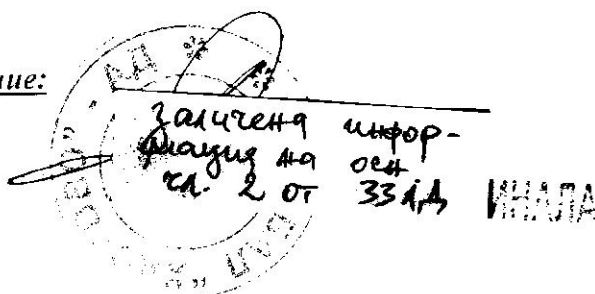 ние:
Заличена инфор-
мация на осн
чл. 2 от ЗЗЛД
АД